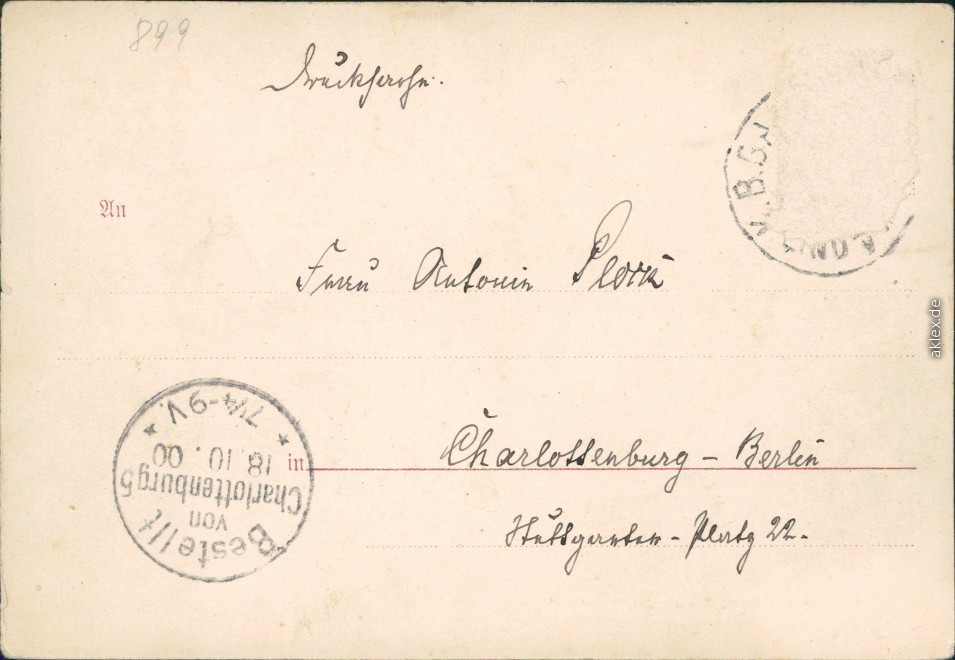 899
Drucksache.
An
Frau Antonin
in Charlottenburg - Berlin
Stuttgarter - Platz 22.
Bestellt
von
Charlottenburg 5
18.10.00
* 7¼-9V. *
aklex.de